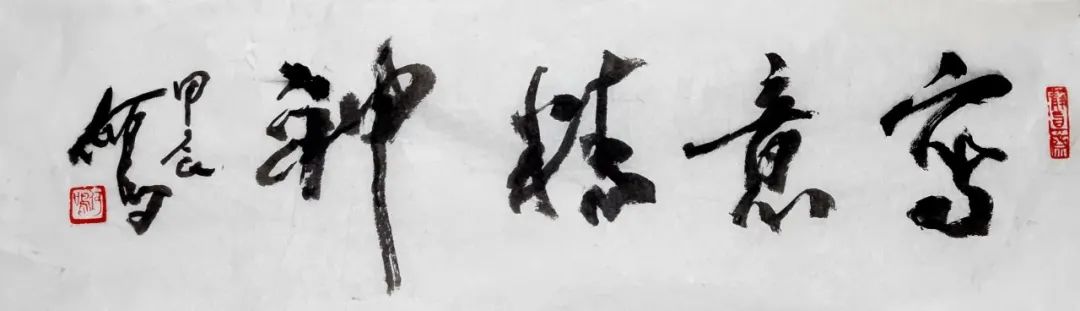 寫意精神
甲辰